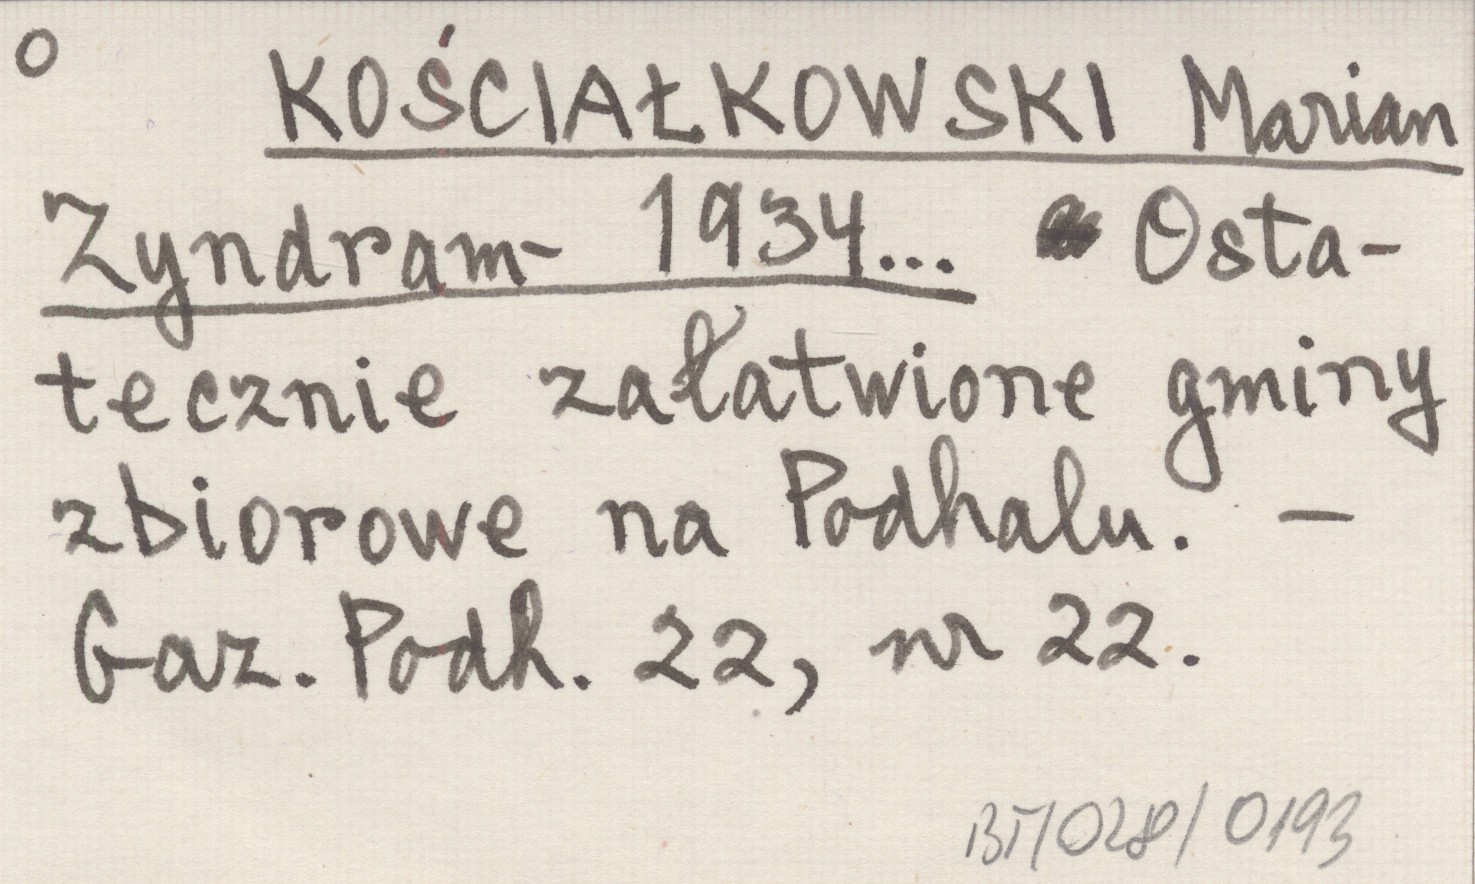 O
KOŚCIAŁKOWSKI Marian
Zyndram- 1934... Osta-
tecznie załatwione gminy
zbiorowe na Podhalu. –
Gaz. Podh. 22, nr 22.
BT/028/0193